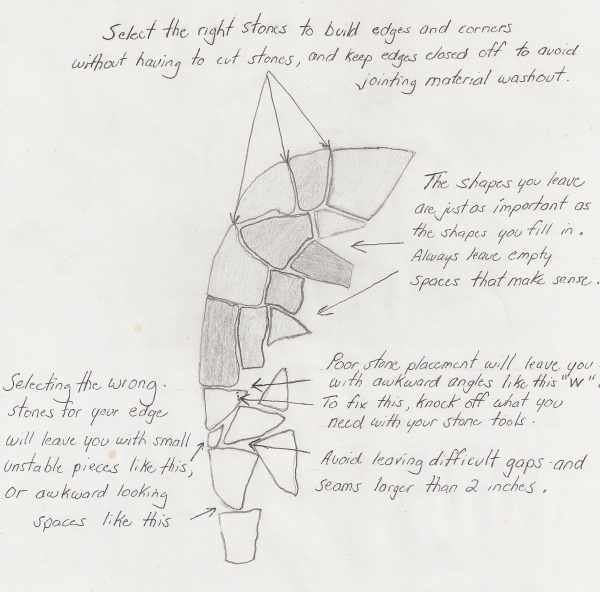 Select the right stones to build edges and corners
without having to cut stones, and keep edges closed off to avoid
jointing material washout.
The shapes you leave
are just as important as
the shapes you fill in.
Always leave empty
spaces that make sense.
Poor stone placement will leave you
with awkward angles like this "W".
To fix this, knock off what you
need with your stone tools.
Selecting the wrong
stones for your edge
will leave you with small
unstable pieces like this,
or awkward looking
spaces like this
Avoid leaving difficult gaps and
seams larger than 2 inches.